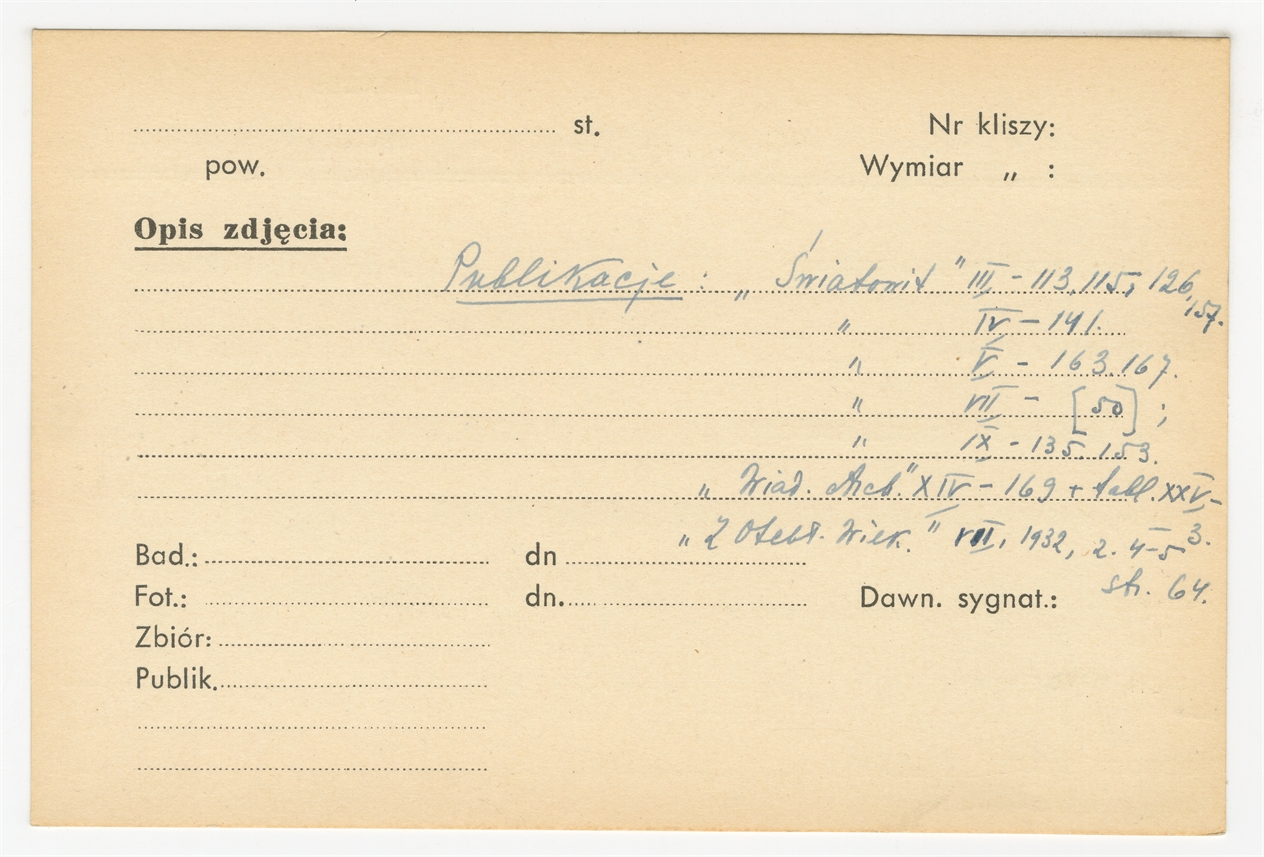 st.
Nr kliszy:
pow.
Wymiar „ :
Opis zdjęcia:
Publikacje : „Światowit" III - 113, 115, 126, 157.
" IV - 141.
" V - 163. 167.
" VII - [50] ;
" IX - 135. 153.
„Wiad. Arch." XIV - 169 + tabl. XXV, - 3.
„Z Otchł. Wiek." VII, 1932, z. 4-5
str. 64.
Bad.:
dn
Fot.:
dn.
Dawn. sygnat.:
Zbiór:
Publik.